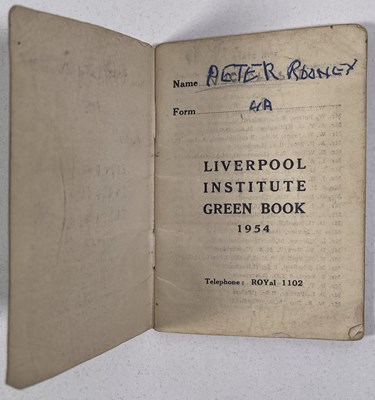 Name PETER ROONEY
Form 4A
LIVERPOOL
INSTITUTE
GREEN BOOK
1954
Telephone: ROYal 1102